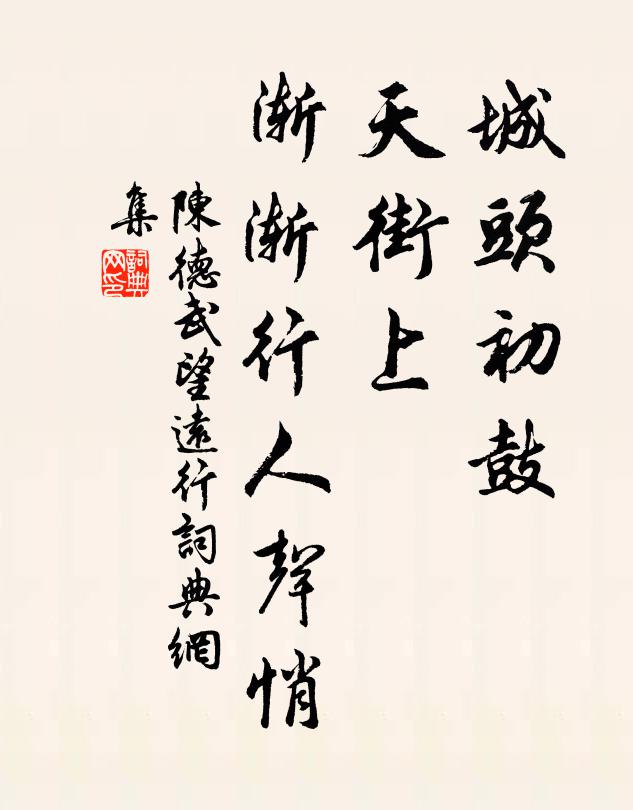 城頭初鼓
天街上
漸漸行人聲悄
陳德武望遠行詞典網
集
詞典
网印